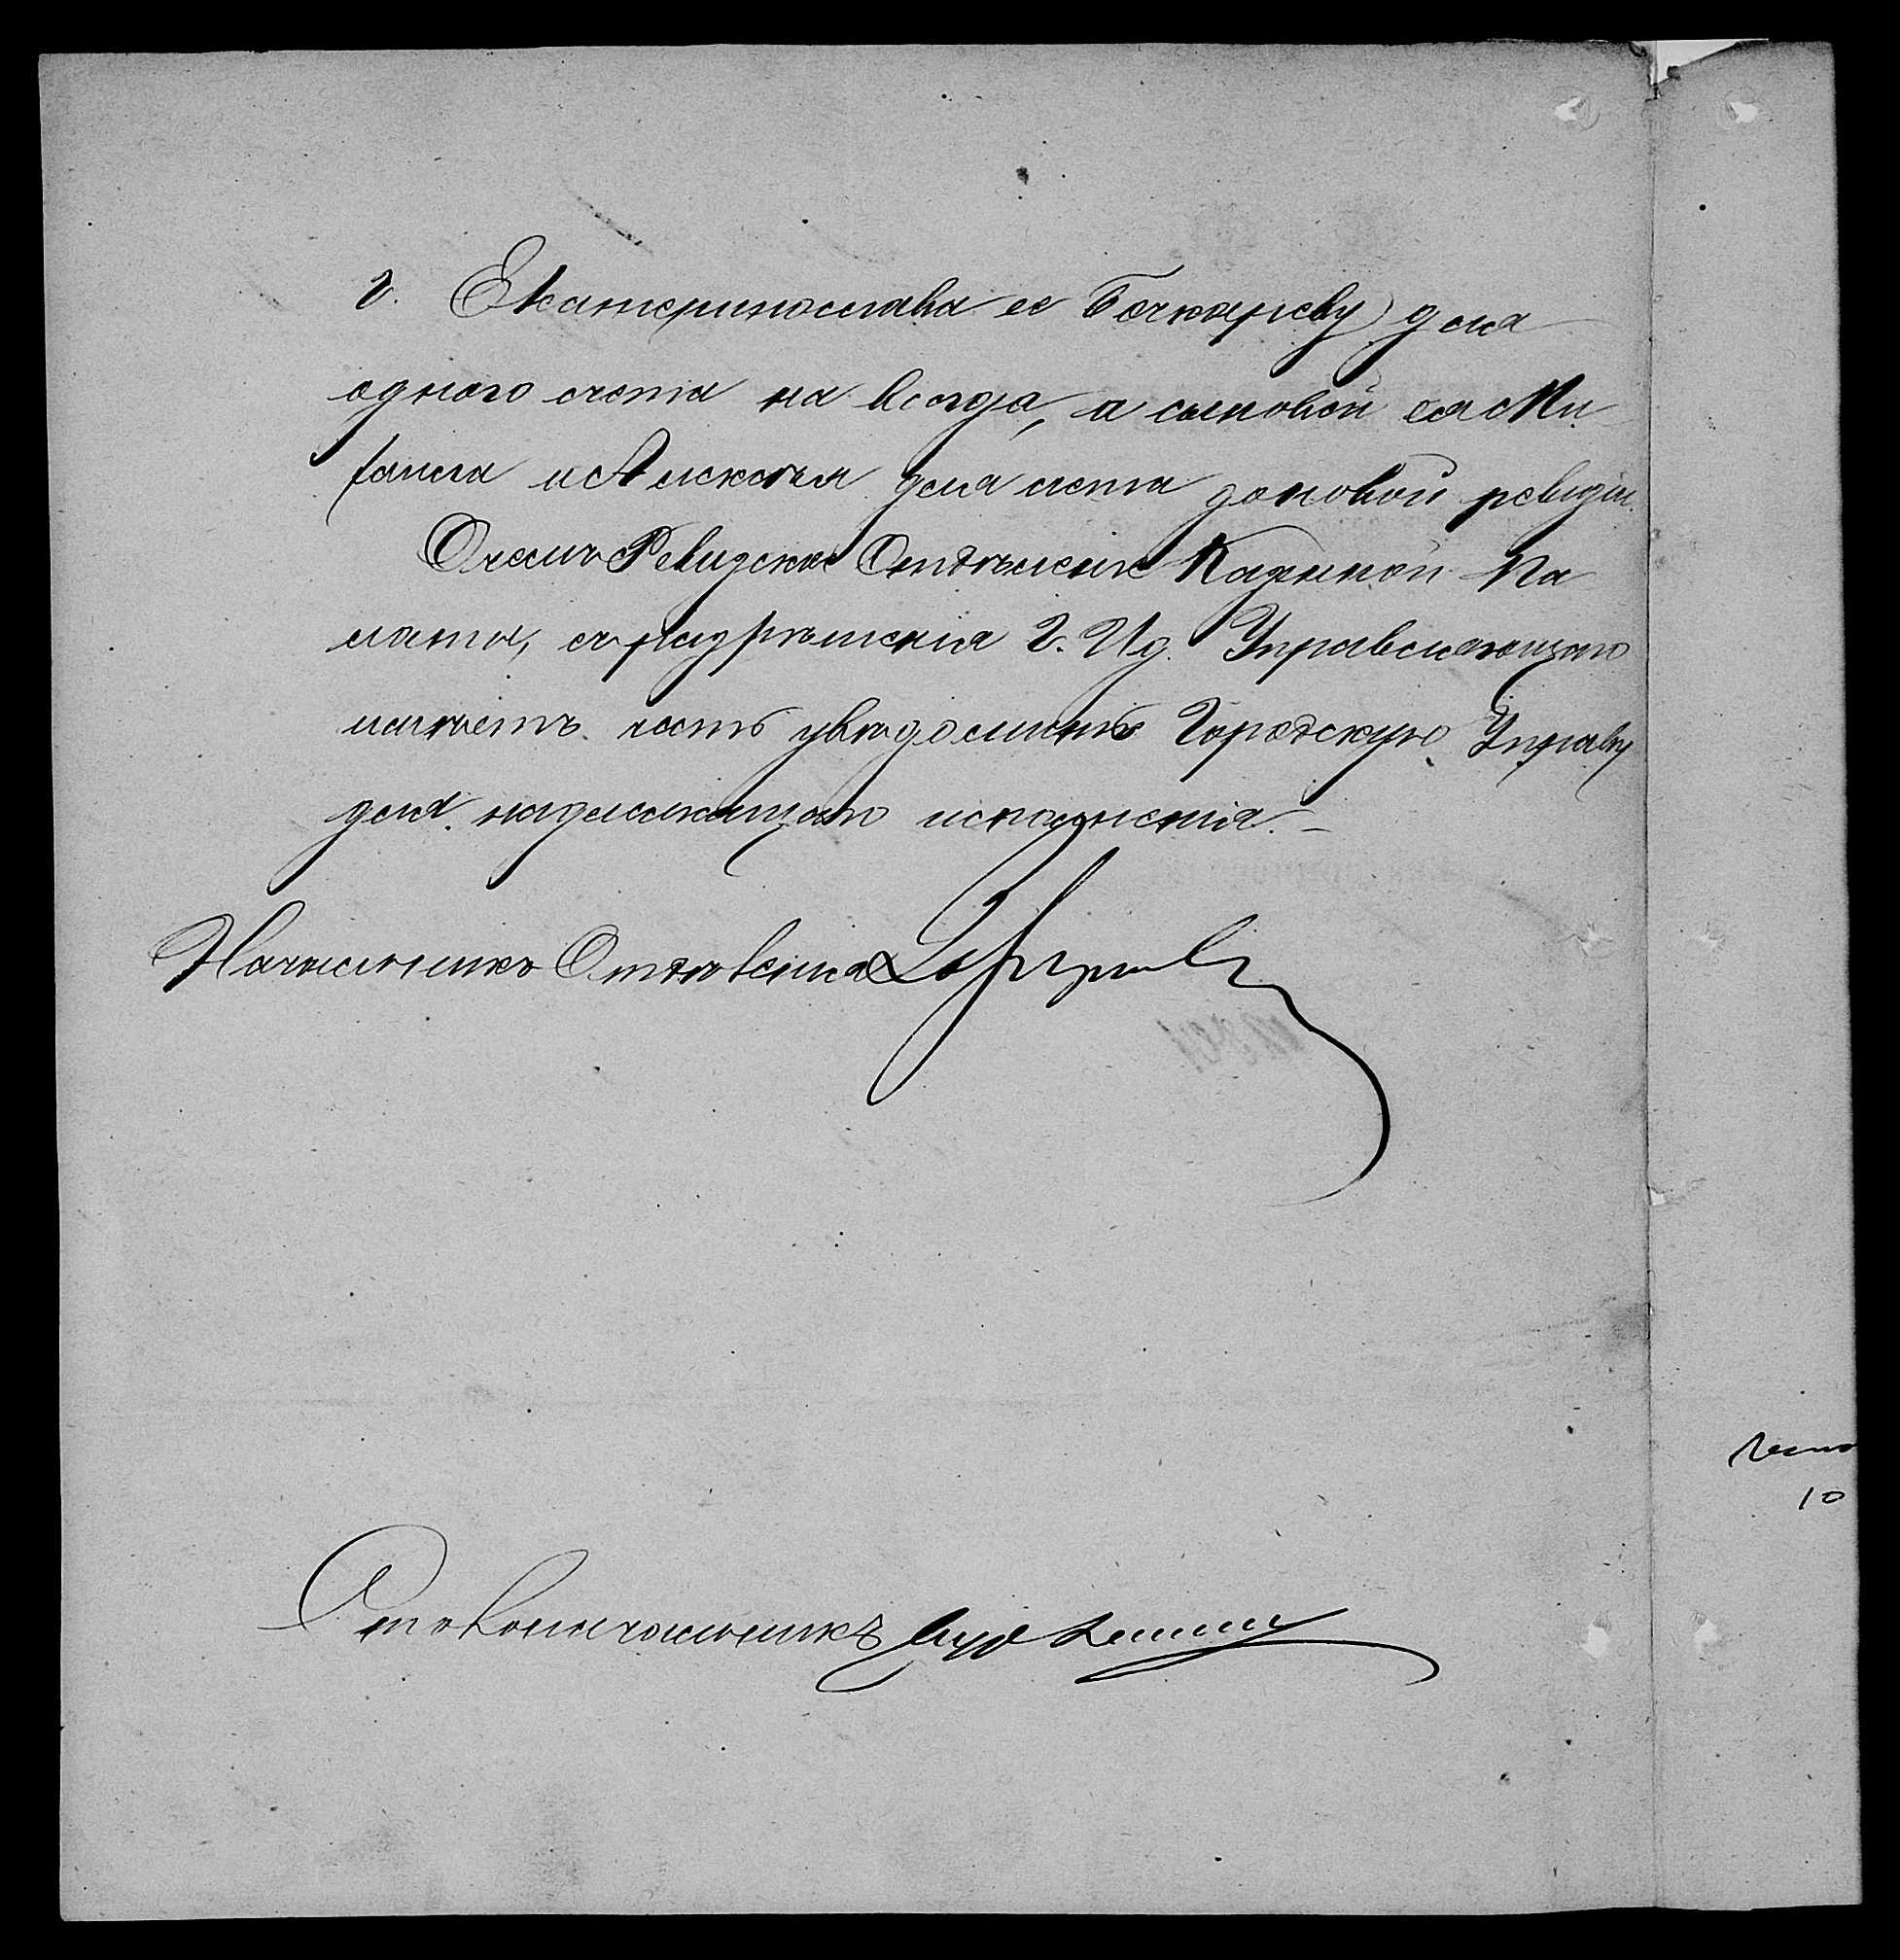 г. Екатеринослава ее Бочкареву для
одного счета на всегда, а сыновей ея Ми
хаила и Алексея для счета до новой ревизіи.
О чемъ Ревизское Отдѣленіе Казенной Па
латы, съ разрѣшенія Г. Ид. Управляющаго
имѣетъ честь увѣдомить Городскую Управу
для надлежащаго исполненія.–
Начальникъ Отдѣленія
Столоначальникъ
10